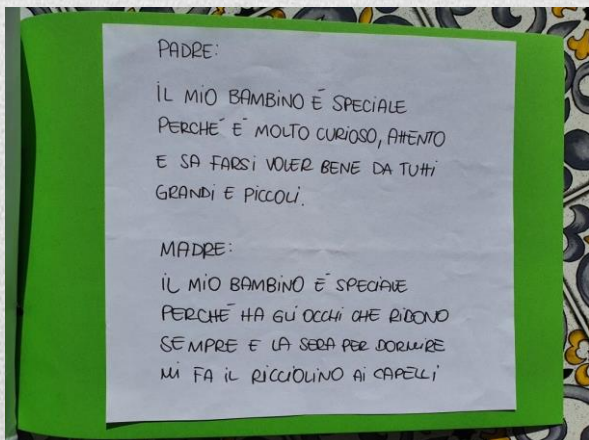 PADRE:
IL MIO BAMBINO È SPECIALE
PERCHÉ È MOLTO CURIOSO, ATTENTO
E SA FARSI VOLER BENE DA TUTTI
GRANDI E PICCOLI.
MADRE:
IL MIO BAMBINO È SPECIALE
PERCHÉ HA GLI OCCHI CHE RIDONO
SEMPRE E LA SERA PER DORMIRE
MI FA IL RICCIOLINO AI CAPELLI